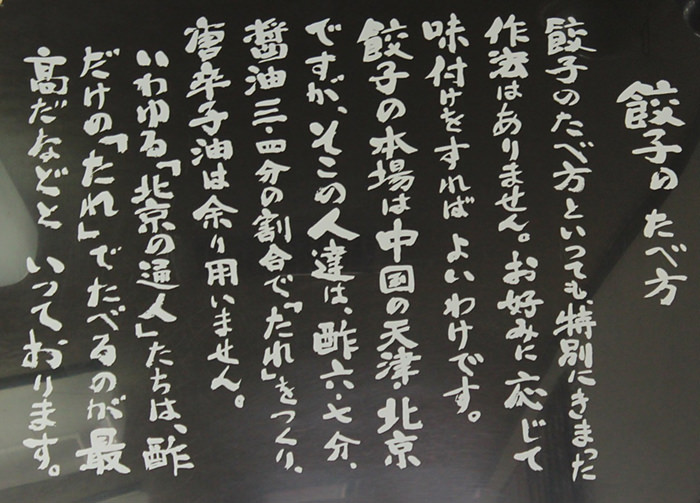 餃子のたべ方
餃子のたべ方といっても、特別にきまった
作法はありません。お好みに応じて
味付けをすれば よいわけです。
餃子の本場は中国の天津・北京
ですが、そこの人達は、酢六・七分、
醤油三・四分の割合で「たれ」をつくり、
唐辛子油は余り用いません。
いわゆる「北京の通人」たちは、酢
だけの「たれ」でたべるのが最
高だなどと いっております。